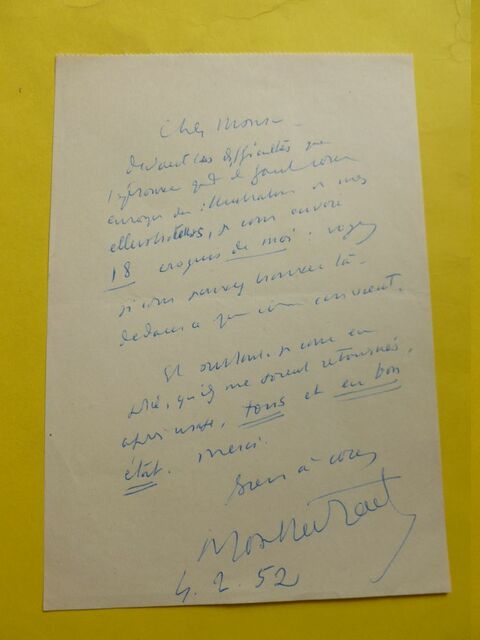 Cher Monsieur
devant les difficultés que
j'éprouve quand il faut vous
envoyer des illustrations
je vous envoie
18 croquis de moi : voyez
si vous pouvez trouver là-
dedans ce qui vous convient.
Et surtout, je vous en
prie, qu'ils me soient retournés,
après usage, tous et en bon
état. Merci.
Bien à vous
Montherlant
4. 2. 52